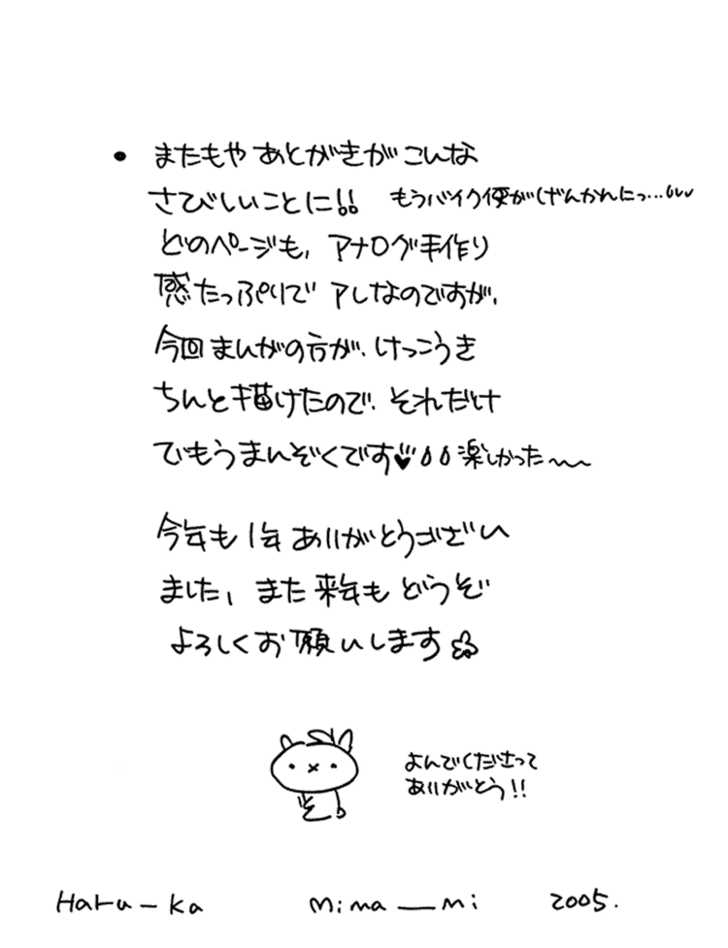 • またもや あとがきが こんな
さびしいことに!! もうバイク便がげんかんにっ…
どのページも、アナログ手作り
感たっぷりで アレなのですが、
今回まんがの方が、けっこうき
ちんと描けたので、それだけ
でもうまんぞくです♥ 楽しかった〜
今年も1年ありがとうござい
ました、また来年もどうぞ
よろしくお願いします
よんでくださって
ありがとう!!
Haru-ka mina_mi 2005.